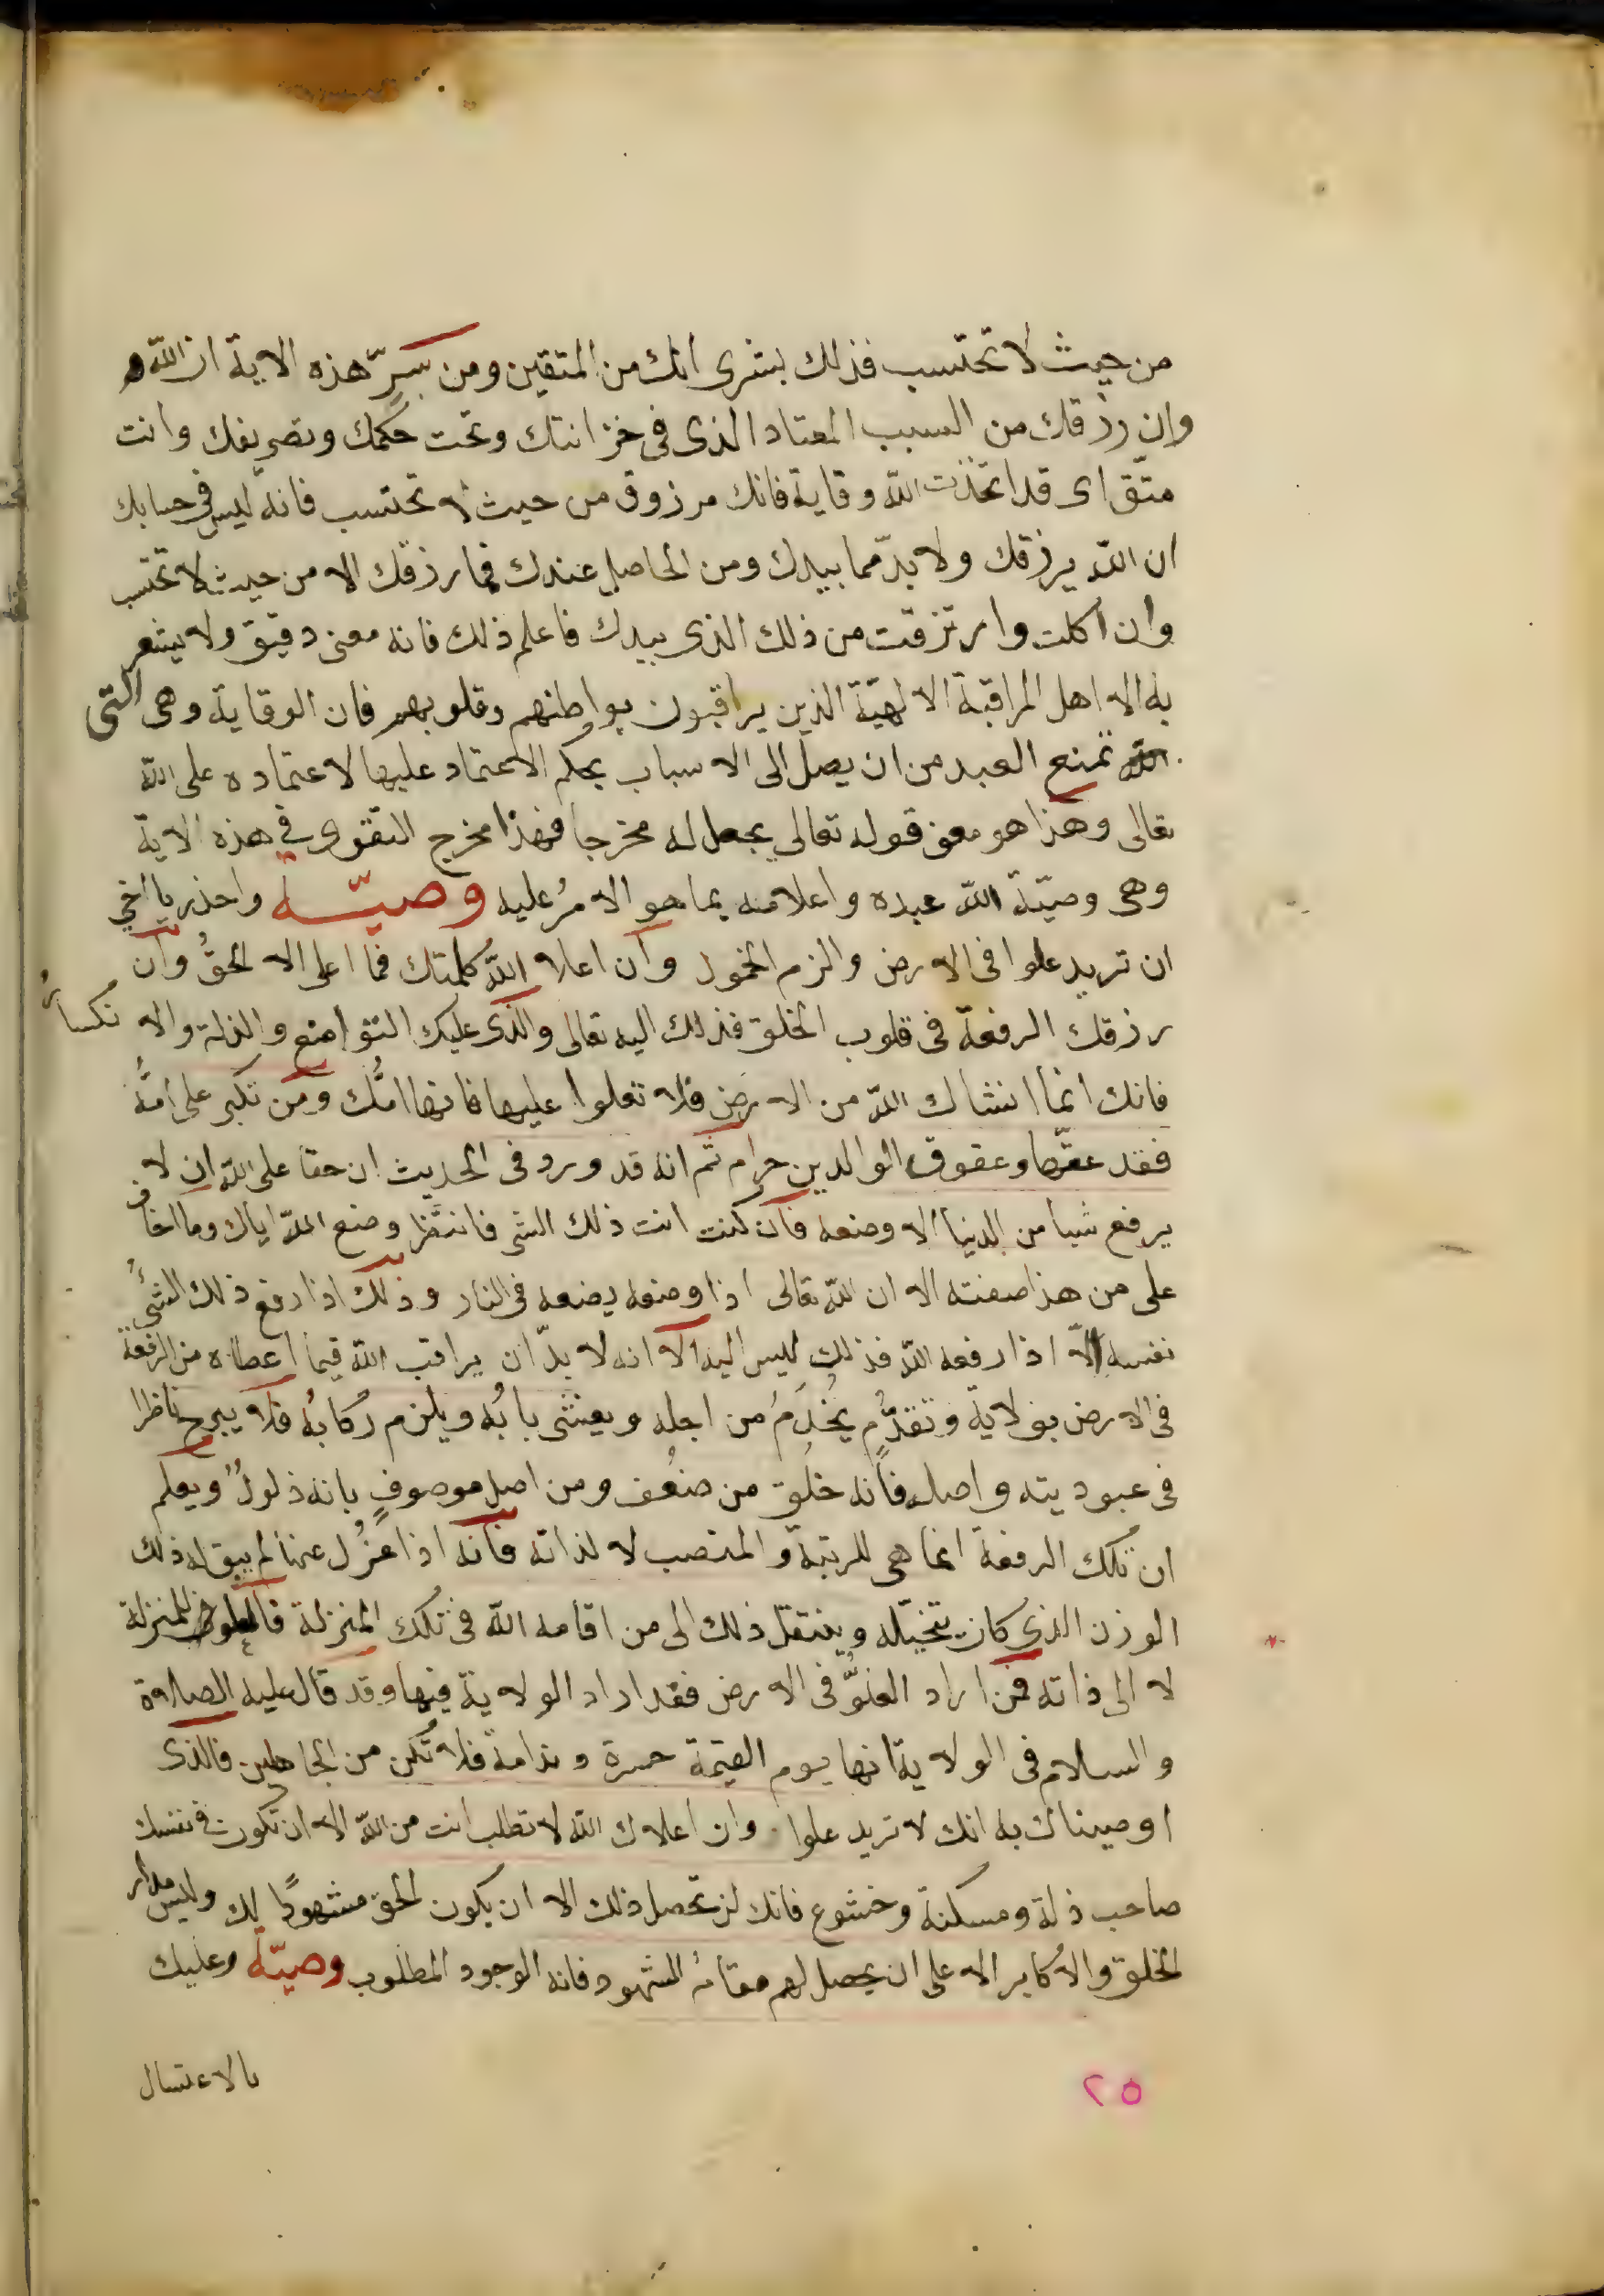 من حيث لا تحتسب فذلك بشرى انك من المتقين ومن سرّ هذه الاية ان الله
وان رزقك من السبب المعتاد الذى فى خزانتك وتحت حكمك وتصريفك وانت
متّق اى قد اتخذت الله وقاية فانك مرزوق من حيث لا تحتسب فانه ليس فى حسابك
ان الله يرزقك ولا بدّ مما بيدك ومن الحاصل عندك فما رزقك الا من حيث لا تحتسب
وان اكلت وارتزقت من ذلك الذى بيدك فاعلم ذلك فانه معنى دقيق ولا يشعر
به الا اهل المراقبة الالهيّة الذين يراقبون بواطنهم وقلوبهم فان الوقاية وهى التى
تمنع العبد من ان يصل الى الاسباب بحكم الاعتماد عليها لاعتماده على الله
تعالى وهذا هو معنى قوله تعالى يجعل له مخرجا فهذا مخرج التقوى فى هذه الاية
وهى وصيّة الله عبده واعلامه بما هو الامرُ عليه وصيّة واحذر يا اخي
ان تريد علوا فى الارض والزم الخمول وان اعلا الله كلمتك فما اعلى الا الحقُّ وان
رزقك الرفعة فى قلوب الخلق فذلك اليه تعالى والذى عليك التواضع والذلة والانكسارُ
فانك انما انشاك الله من الارض فلا تعلوا عليها فانها امُّك ومن تكبر على امّه
فقد عقّها وعقوق الوالدين حرام ثم انه قد ورد فى الحديث ان حقا على الله ان لا
يرفع شيا من الدنيا الا وضعه فان كنت انت ذلك الشى فانتظر وضع الله اياك وما اخاف
على من هذا صفته الا ان الله تعالى اذا وضعه يضعه فى النار وذلك اذا رفع ذلك الشئُ
نفسه الا اذا رفعه الله فذلك ليس اليه الا انه لا بدّ ان يراقب الله فيما اعطاه من الرفعة
فى الارض بولاية وتقدُّم يُخدَم من اجله ويغشى بابُه ويلزم ركابُه فلا يبرح ناظرا
فى عبوديته واصله فانه خُلق من ضعُف ومن اصلٍ موصوفٍ بانه ذلولٌ ويعلم
ان تلك الرفعة انما هى للرتبة والمنصب لا لذاته فانه اذا عُزل عنها لم يبق له ذلك
الوزن الذى كان يتخيّله وينتقل ذلك الى من اقامه الله فى تلك المنزلة فالعلو للمنزلة
لا الى ذاته فمن اراد العلوّ فى الارض فقد اراد الولاية فيها وقد قال عليه الصلاة
والسلام فى الولاية انها يوم القيمة حسرة وندامة فلا تكن من الجاهلين فالذى
اوصيناك به انك لا تريد علوا وان اعلاك الله لا تطلب انت من الله الا ان تكون فى نفسك
صاحب ذلة ومسكنة وخشوع فانك لن تحصل ذلك الا ان يكون الحق مشهودًا لك وليس مدار
الخلق والاكابر الا على ان يحصل لهم مقامُ الشهود فانه الوجود المطلوب وصيّة وعليك
بالاغتسال
٢٥